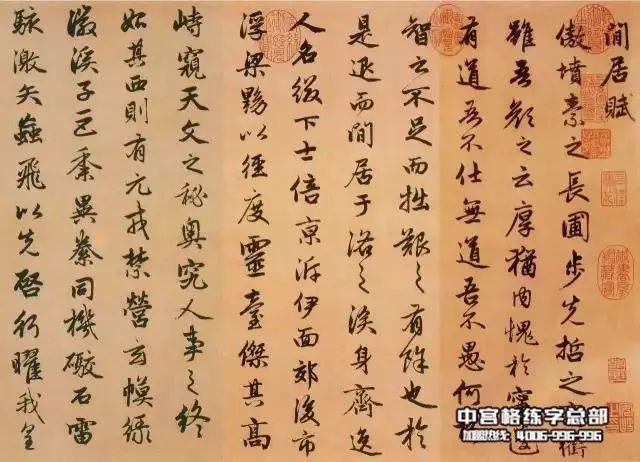 閒居賦
傲墳素之長圃步先哲之衢
雖吾顏之云厚猶内愧於寧
有道吾不仕無道吾不愚何
智之不足而拙艱之有餘也於
是退而閒居于洛之涘身齊逸
人名綴下士倍京泝伊面郊後市
浮梁黝以徑度靈臺傑其高
峙窺天文之秘奧究人事之終
始其西則有元戎禁營玄幙綠
徽溪子巨黍異絭同機礮石雷
駭激矢蟲飛以先啓行曜我皇
中宫格练字总部
加盟热线：4006-996-996